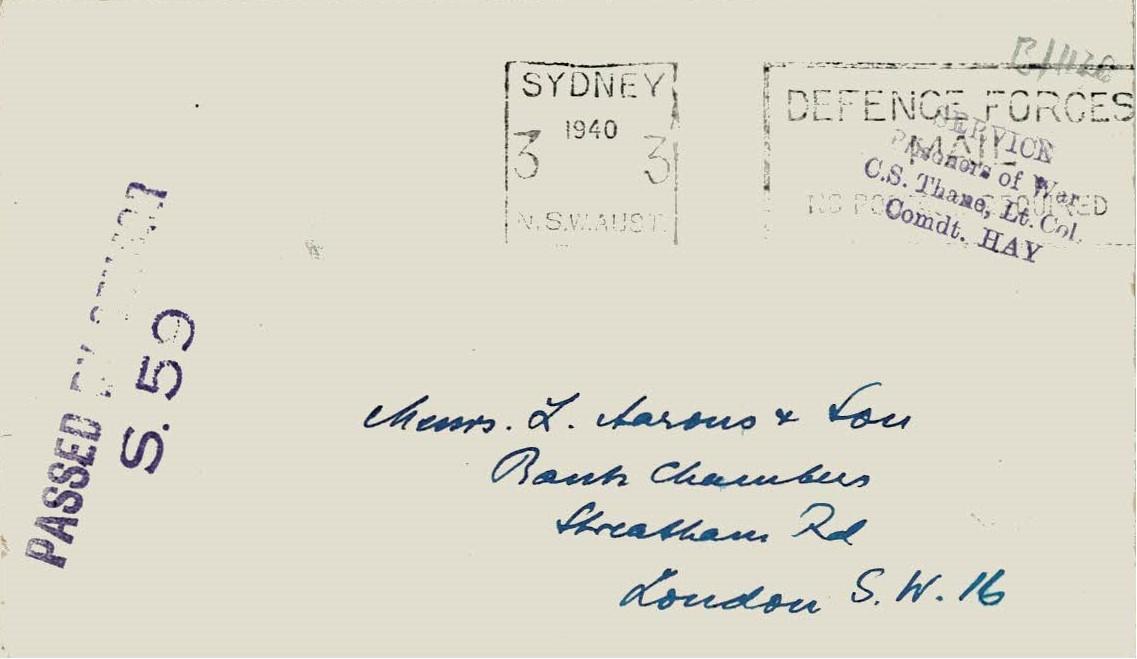 SYDNEY
1940
3 3
N.S.W. AUST.
DEFENCE FORCES
MAIL
NO REQUIRED
SERVICE
Prisoners of War
C.S. Thane, Lt. Col.
Comdt. HAY
PASSED BY
S. 59
Messrs. L. Aarons & Son
Bank Chambers
Streatham Rd
London S. W. 16